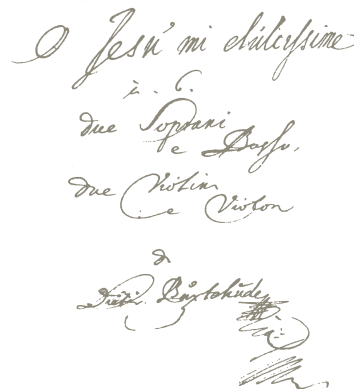 O Jesu mi dulcissime
à. 6.
due Soprani
e Basso.
due Violini
e Violon
di
Dieter. Buxtehude